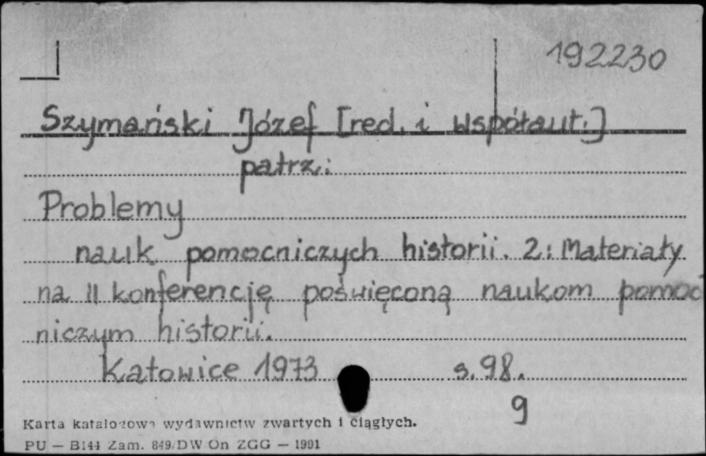 192230
Szymański Józef [red. i współaut.]
patrz:
Problemy
nauk pomocniczych historii. 2: Materiały
na II konferencję poświęconą naukom pomoc
niczym historii.
Katowice 1973 s. 98.
9
Karta katalogowa wydawnictw zwartych i ciągłych.
PU — B144 Zam. 849/DW On ZGG — 1991